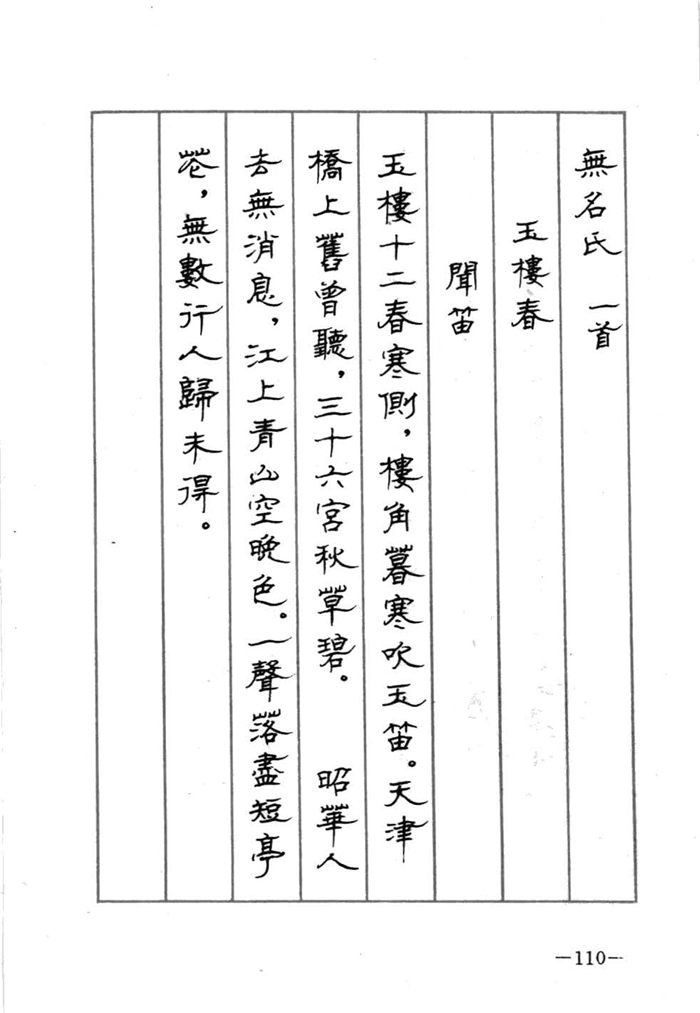 無名氏 一首
玉樓春
聞笛
玉樓十二春寒側，樓角暮寒吹玉笛。天津
橋上舊曾聽，三十六宮秋草碧。 昭華人
去無消息，江上青山空晚色。一聲落盡短亭
花，無數行人歸未得。
—110—